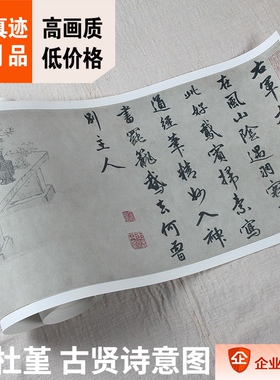 真迹
品
高画质
低价格
右軍
在風山陰遇羽客
此好鵝賓掃素寫
道經筆精妙入神
書罷籠鵝去何曾
別主人
杜堇 古贤诗意图
企业